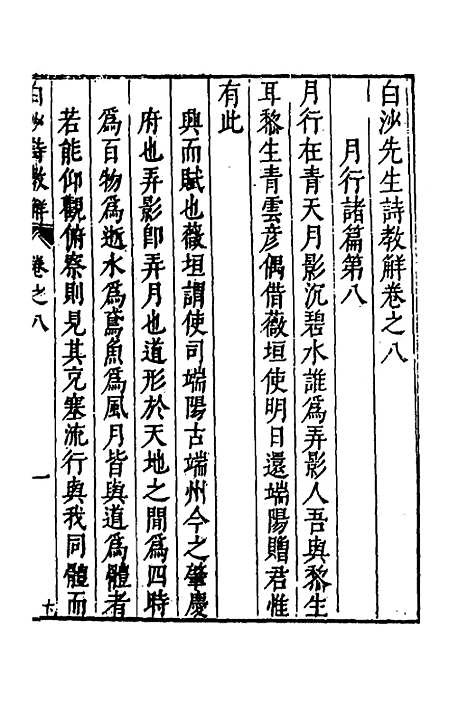 白沙先生詩教解卷之八
月行諸篇第八
月行在青天月影沉碧水誰爲弄影人吾與黎生
耳黎生青雲彦偶借薇垣使明日還端陽贈君惟
有此
興而賦也薇垣謂使司端陽古端州今之肇慶
府也弄影卽弄月也道形於天地之間爲四時
爲百物爲逝水爲鳶魚爲風月皆與道爲體者
若能仰觀俯察則見其充塞流行與我同體而
白沙詩教解 卷之八 一